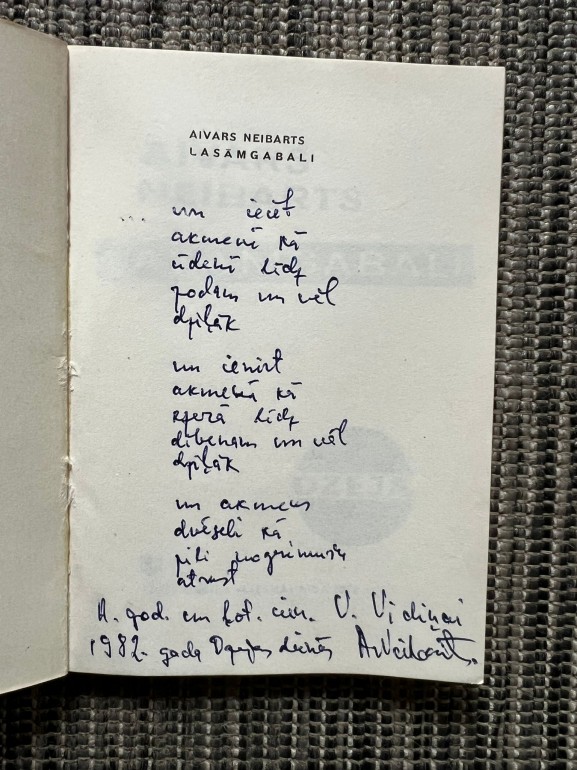 AIVARS NEIBARTS
LASĀMGABALI
... un ieiet
akmenī kā
ūdenī līdz
podam un vēl
dziļāk
un ienirt
akmenī kā
ezerā līdz
dibenam un vēl
dziļāk
un akmens
dvēseli kā
pili nogrimušu
atrast
A. god. un
V. Vidiņai
1982. gada Dzejas dienās ANeibarts.